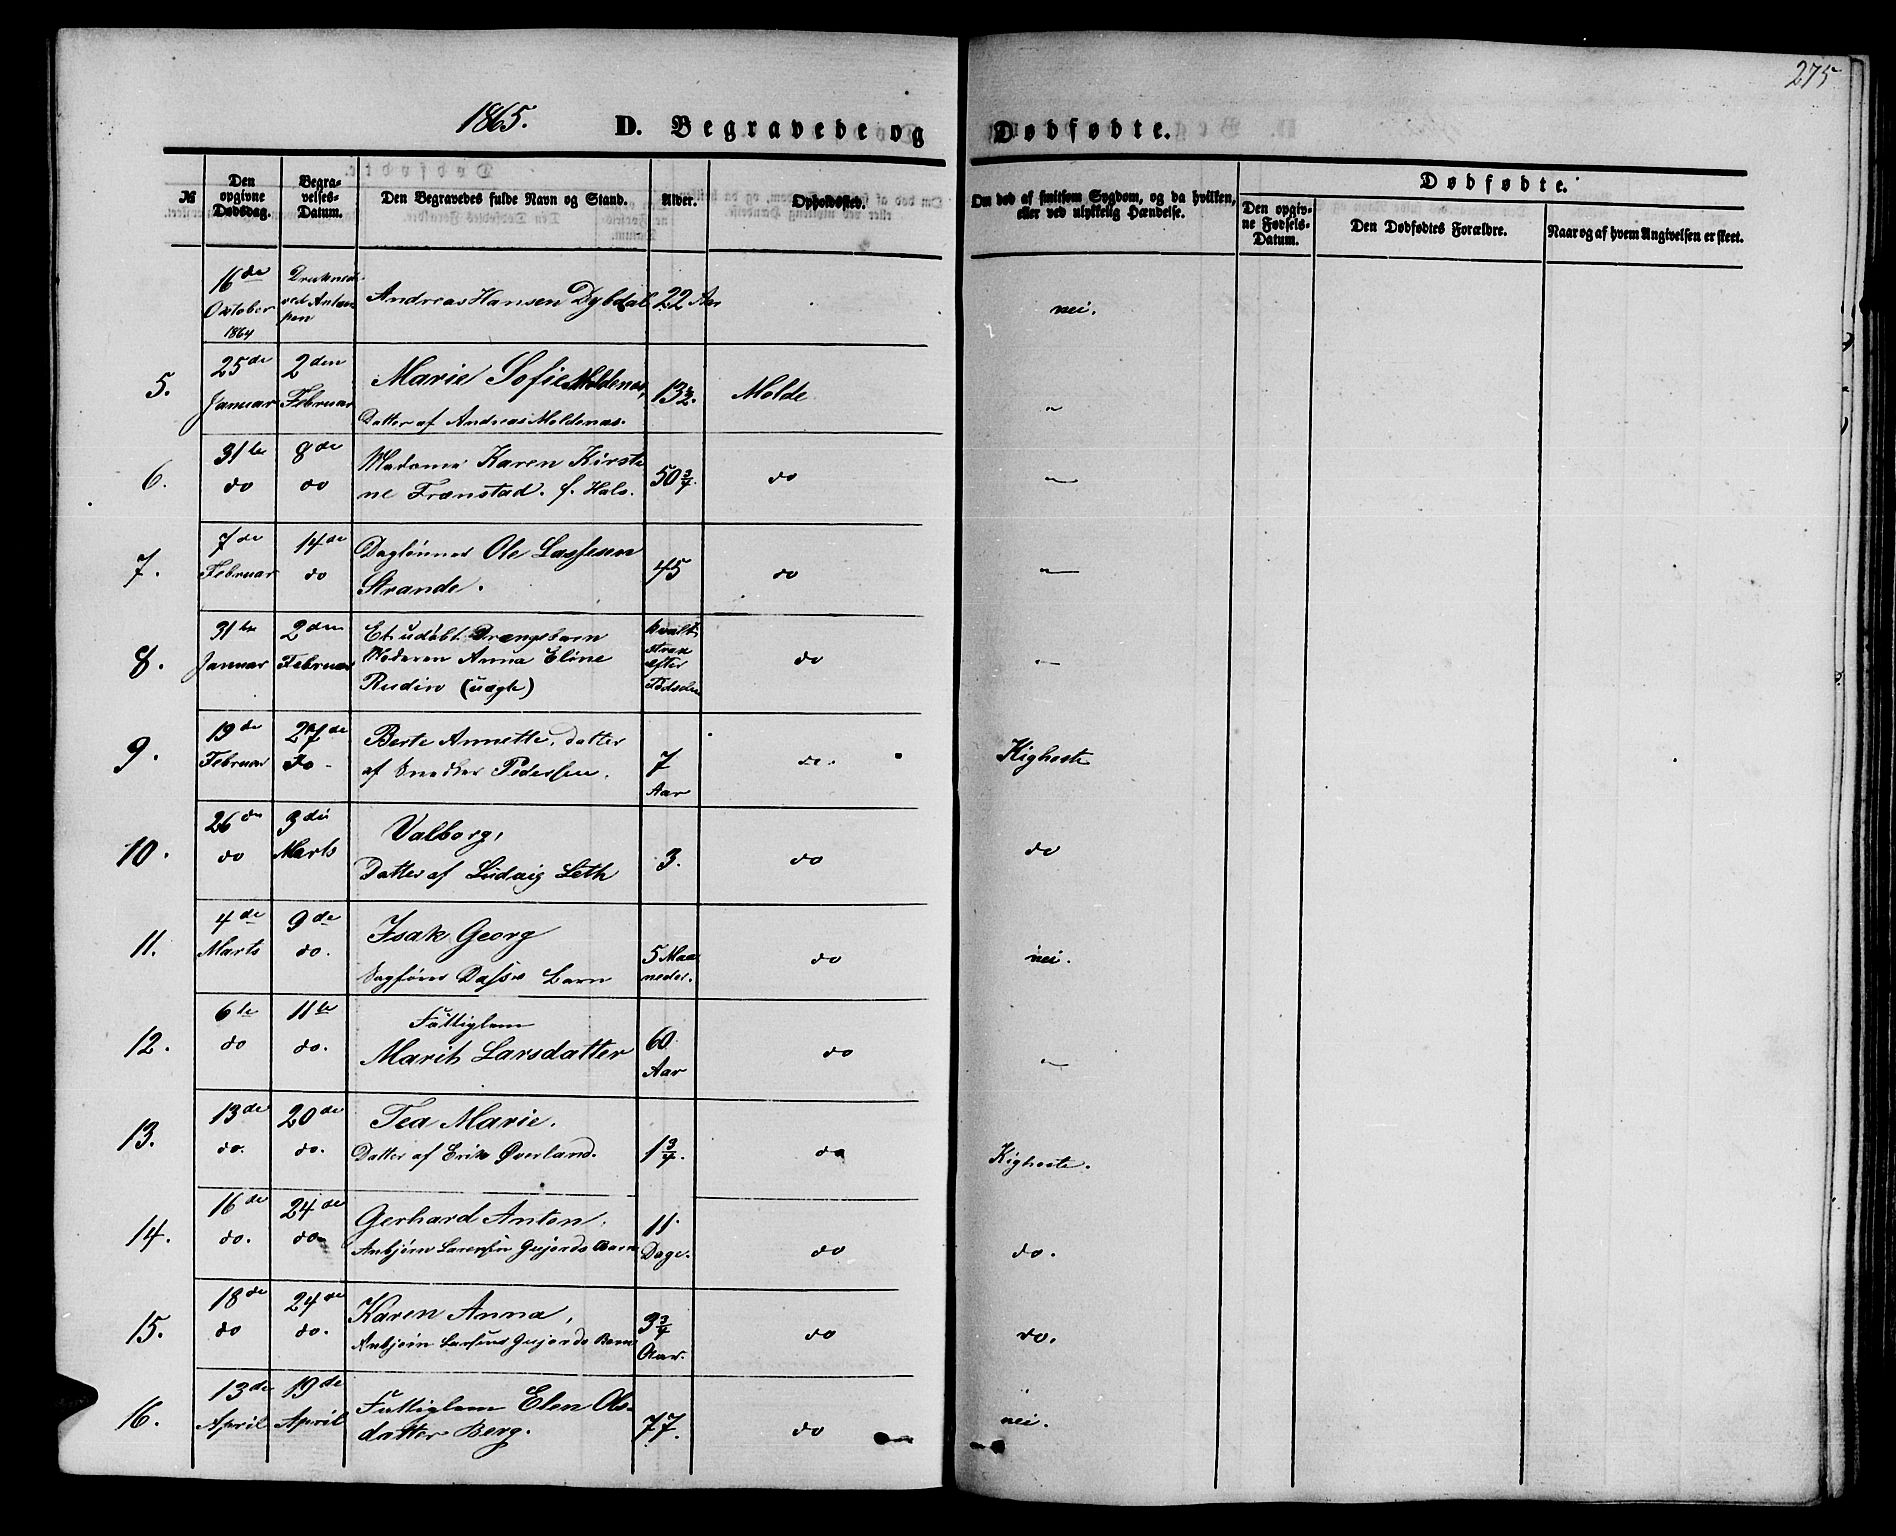 275
1865. D. Begravede og Dødfødte.
№ Den opgivne Dødsdag. Begravelses-Datum. Den Begravedes fulde Navn og Stand. Alder. Opholdssted. Om død af smitsom Sygdom, og da hvilken, eller ved ulykkelig Hændelse. Dødfødte.
Den opgivne Fødsels-Datum. Den Dødfødtes Forældre. Naar og af hvem Angivelsen er skeet.
16de Druknede
Oktober ved Antwer Andreas Hansen Dybdal. 22 Aar nei.
1864 pen
25de 2den Marie Sofie Moldenæs,
5. Januar Februar Datter af Andreas Moldenæs. 13 1/2. Molde "
31te 8de Madame Karen Kirsti
6. do do ne Frænstad. f. Hals. 50 3/4. do "
7de 14de Daglønner Ole Lassesen
7. Februar do Strande. 45 do "
31te 2den Et udøbt Drengebarn kvalt
8. Januar Februar Moderen Anna Eline strax efter do "
Rudin (uægte) Fødselen
19de 27de Berte Annette, datter
9. Februar do af Snedker Pedersen. 7 Aar do. Kighoste
26de 3die Valborg,
10. do Marts Datter af Ludvig Leth 3. do do
4de 9de Isak Georg
11. Marts do. Sagfører Dasses Barn 5 Maaneder. do nei.
6te 11te Fattiglem
12. do do. Marit Larsdatter 60 Aar do "
13de 20de Tea Marie.
13. do. do. Datter af Erik Øverland. 1 3/4. do Kighoste.
16de 24de Gerhard Anton,
14. do. do Anbjørn Larensen Gujords Barn 11 Dage. do do.
18de 24de Karen Anna,
15. do do. Anbjørn Larsens Gujords Barn 3 3/4 Aar. do do.
13de 19de Fattiglem Elen Ols-
16. April April datter Berg. 77. do nei.